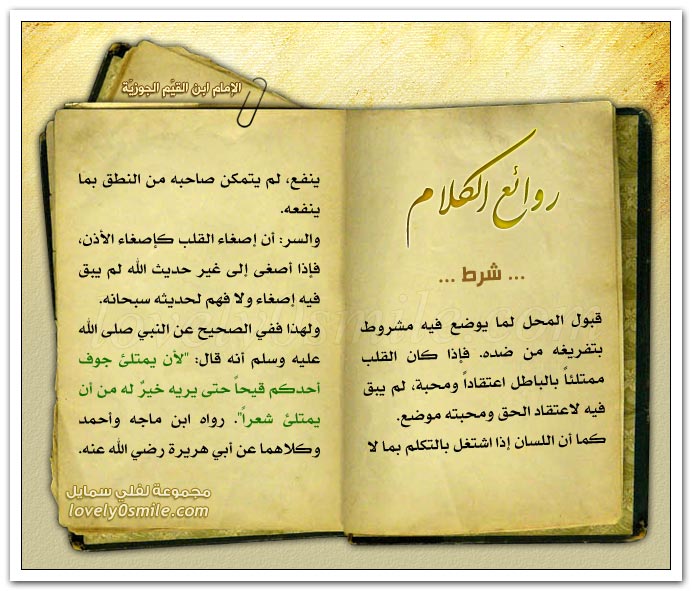 الإمام ابن القيَّم الجوزيَّة
روائع الكلام
... شرط ...
قبول المحل لما يوضع فيه مشروط
بتفريغه من ضده. فإذا كان القلب
ممتلئاً بالباطل اعتقاداً ومحبة، لم يبق
فيه لاعتقاد الحق ومحبته موضع.
كما أن اللسان إذا اشتغل بالتكلم بما لا
ينفع، لم يتمكن صاحبه من النطق بما
ينفعه.
والسر: أن إصغاء القلب كإصغاء الأذن،
فإذا أصغى إلى غير حديث الله لم يبق
فيه إصغاء ولا فهم لحديثه سبحانه.
ولهذا ففي الصحيح عن النبي صلى الله
عليه وسلم أنه قال: "لأن يمتلئ جوف
أحدكم قيحاً حتى يريه خيرٌ له من أن
يمتلئ شعراً". رواه ابن ماجه وأحمد
وكلاهما عن أبي هريرة رضي الله عنه.
مجموعة لفلي سمايل
lovely0smile.com